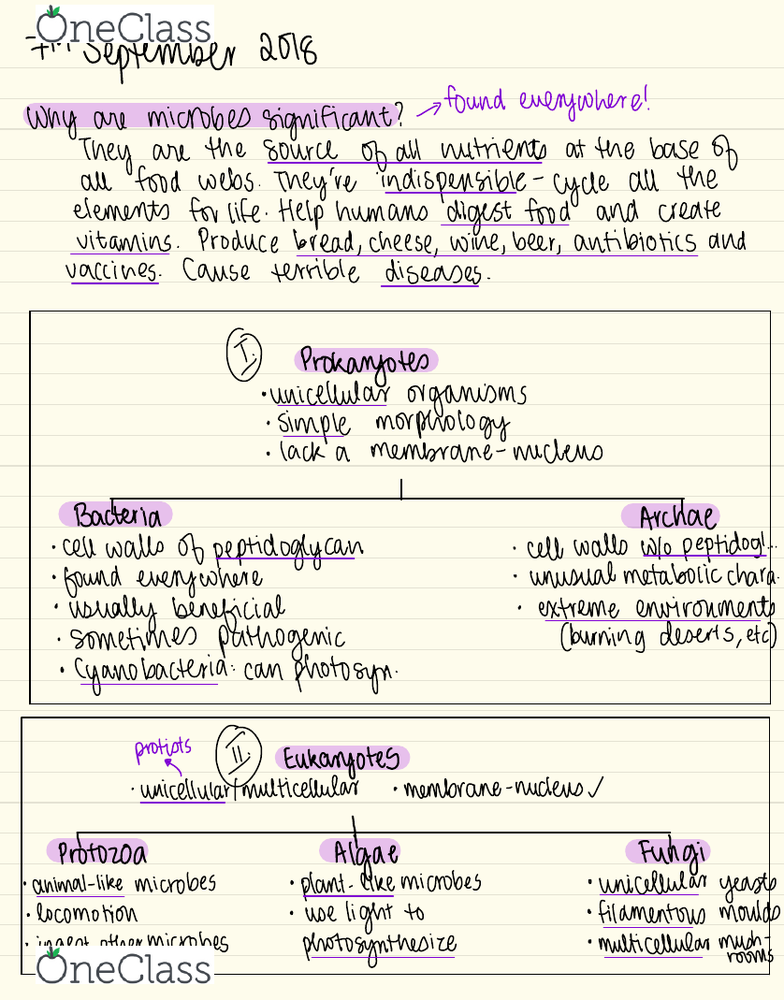 OneClass
7th September 2018
Why are microbes significant? → found everywhere!
They are the source of all nutrients at the base of
all food webs. They're indispensible - cycle all the
elements for life. Help humans digest food and create
vitamins. Produce bread, cheese, wine, beer, antibiotics and
vaccines. Cause terrible diseases.
I.
Prokaryotes
• unicellular organisms
• simple morphology
• lack a membrane-nucleus
Bacteria
• cell walls of peptidoglycan
• found everywhere
• usually beneficial
• sometimes pathogenic
• Cyanobacteria: can photosyn.
Archae
• cell walls w/o peptidogl...
• unusual metabolic chara.
• extreme environments
(burning deserts, etc)
protists
II.
Eukaryotes
• unicellular/multicellular • membrane-nucleus ✓
Protozoa
• animal-like microbes
• locomotion
• ingest other microbes
Algae
• plant-like microbes
• use light to
photosynthesize
Fungi
• unicellular yeasts
• filamentous moulds
• multicellular mush-
rooms
OneClass